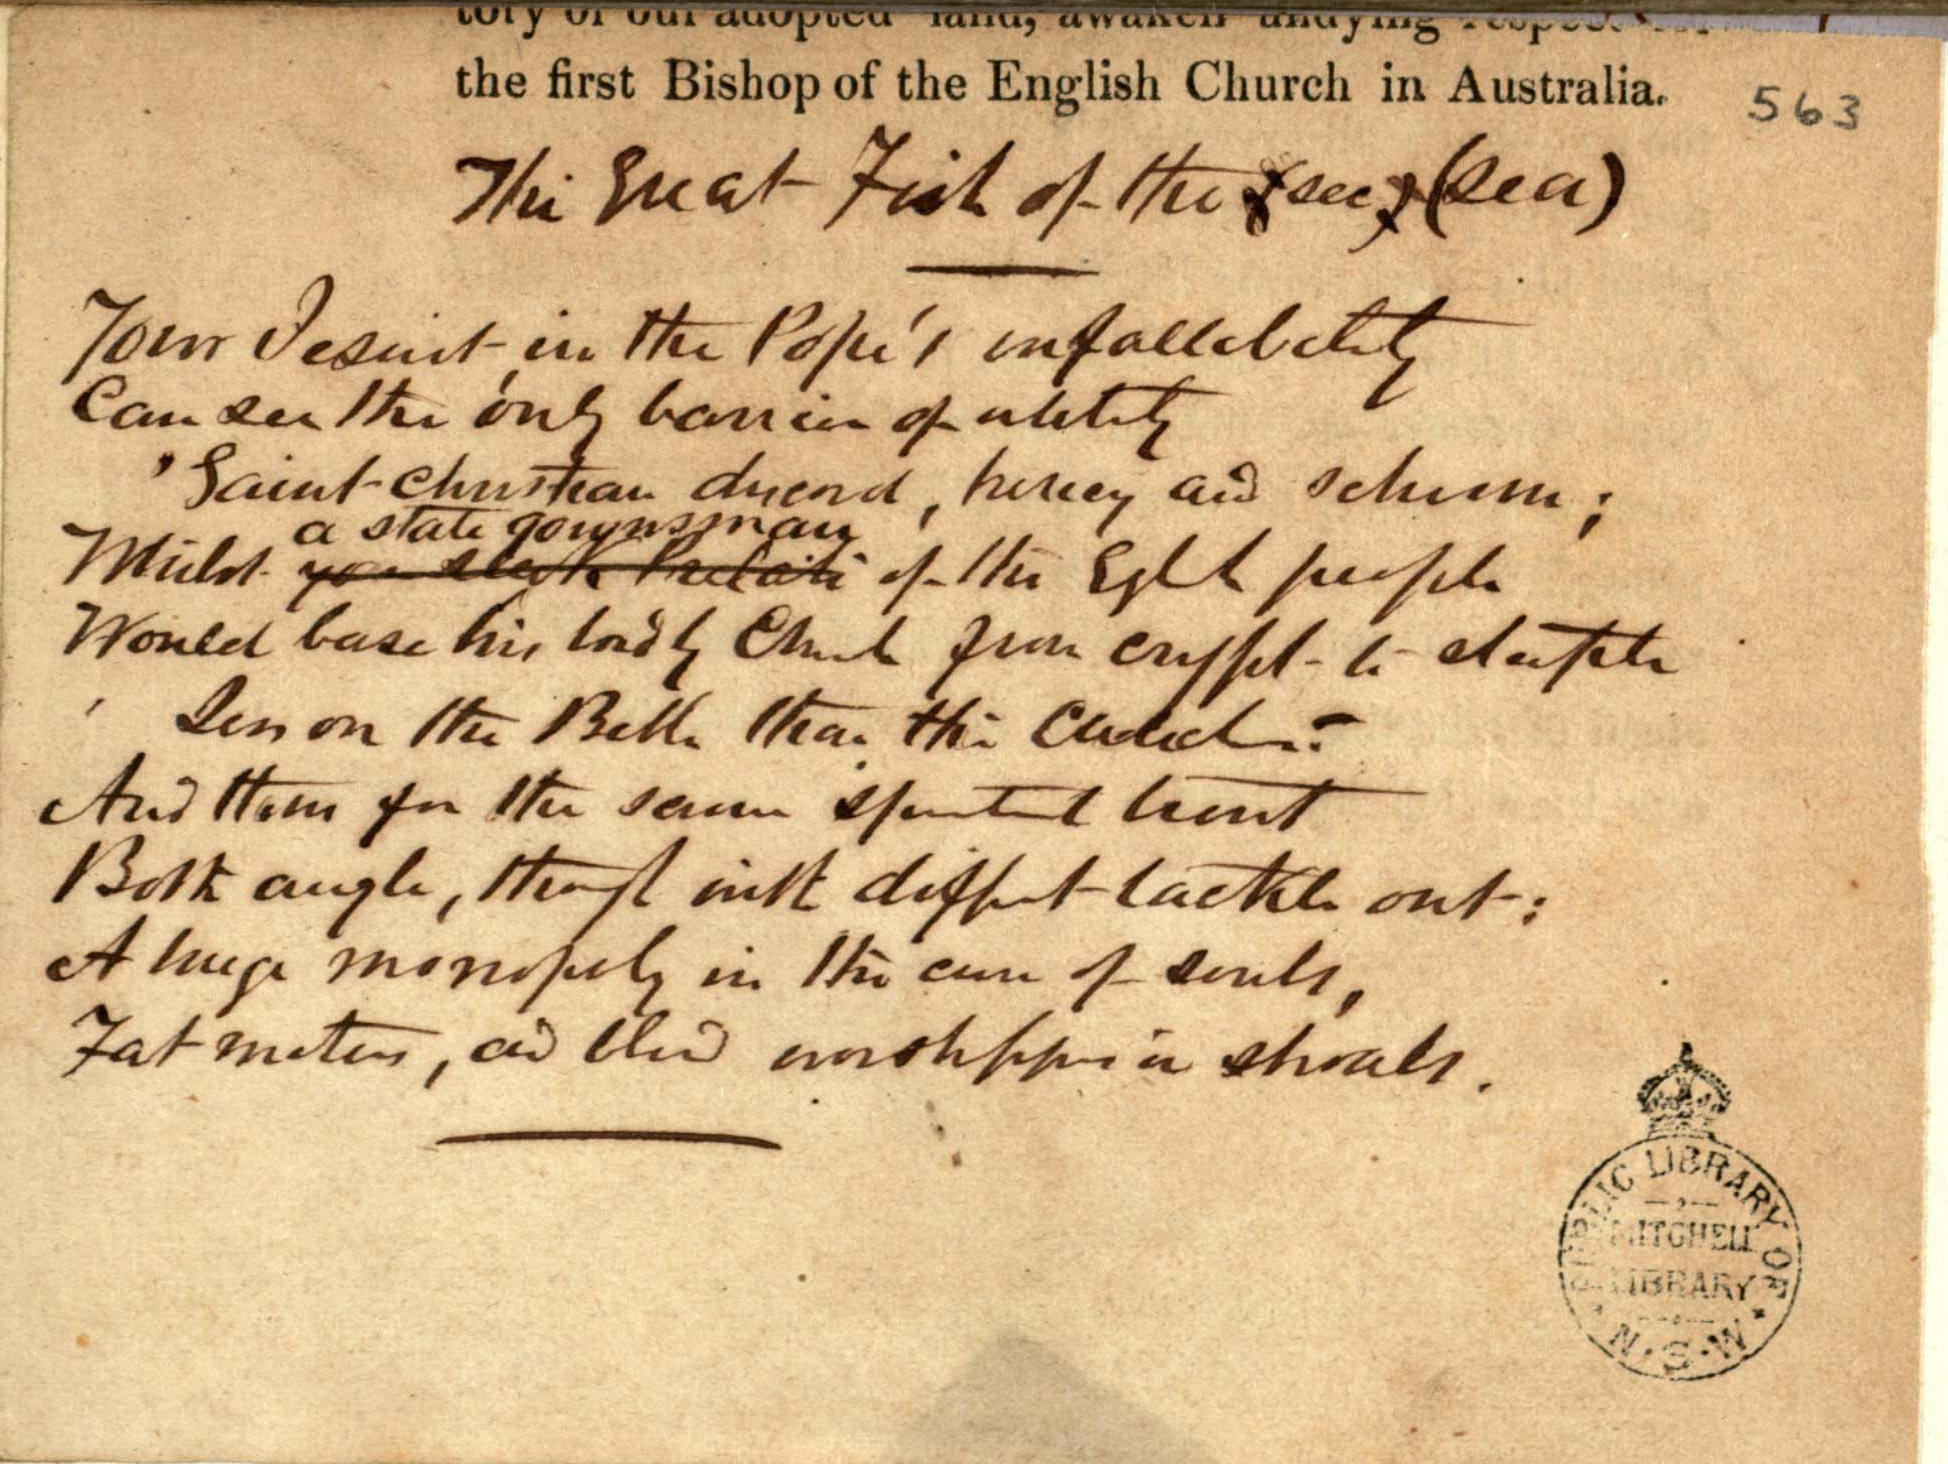 tory of our adopted land, awaken undying respect
the first Bishop of the English Church in Australia.
563
The Great Fish of the (see) (sea)
Your Jesuit in the Pope's infallebility
Can see the only barrier of utility
'Gainst Christian discord, heresy and schism;
a state gownsman
Whilst your sleek Prelate of the Eglsh people
Would base his lordly Church from crypt to steeple
Less on the Bible than the
And thus for the same spiritual trout
Both angle, though with diffent tackle out:
A huge monopoly in the cure of souls,
Fat , and blind worshippers in shoals.
PUBLIC LIBRARY OF N.S.W.
MITCHELL
LIBRARY